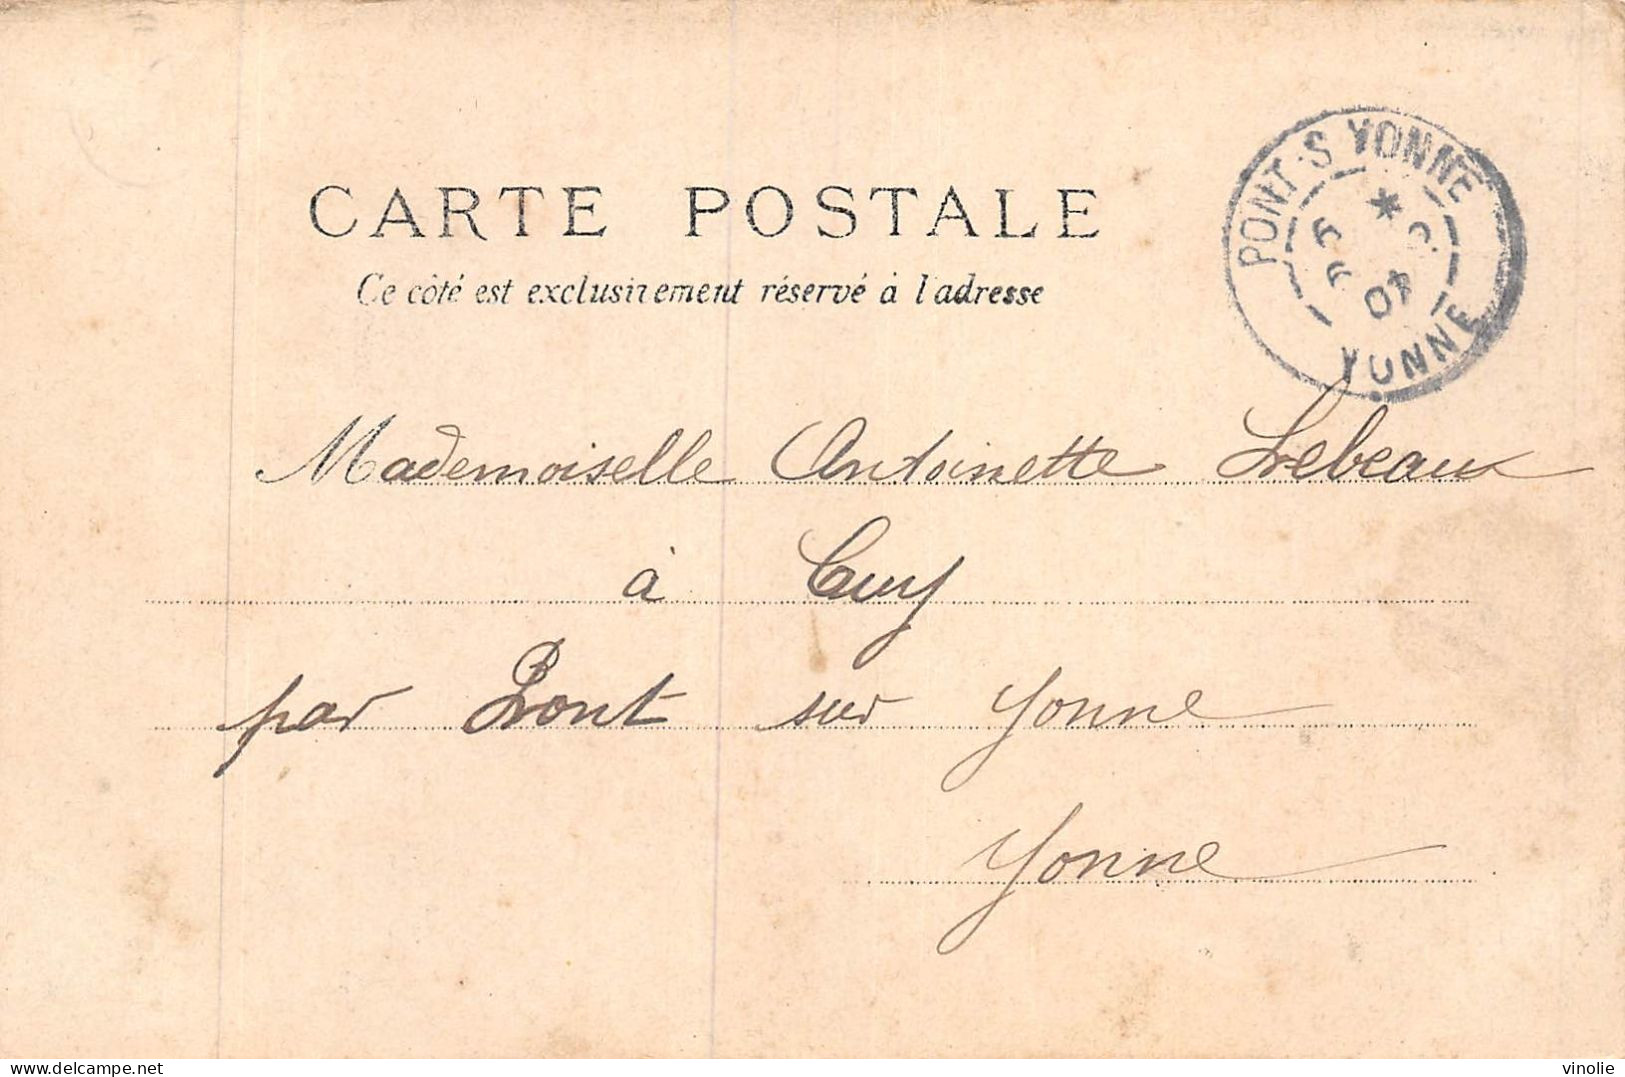 CARTE POSTALE
Ce côté est exclusivement réservé à l'adresse
PONT-S-YONNE
*
04
YONNE
Mademoiselle Antoinette Lebeau
à Cuy
par Pont sur Yonne
Yonne
delcampe.net
vinolie